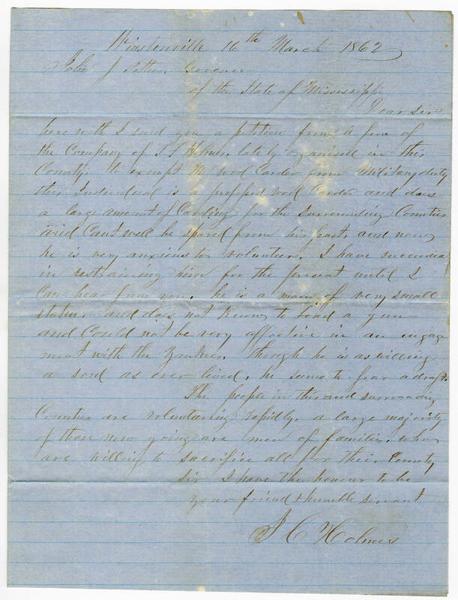 Winstonville 16th March 1862
John J Pettus Governor
of the State of Mississippi
Dear Sir
here with I send you a petition from a few of
the Company of J J H lately organised in this
County. to exempt the wool Carder from Military duty
this Individual is a profesd wool Carder and does
a large amount of Carding for the Surrounding Counties
and Cant well be spared from his post, and now
he is very anxious to volunteer. I have succeeded
in restraining him for the present until I
Can hear from you. he is a man of very small
statue and does not know to load a gun
and Could not be very effective in an engage
ment with the Yankees. though he is as willing
a soul as ever lived. he seems to fear a draft.
The people in this and surrounding
Counties are volunteering rapidly. a large majority
of those now going are men of families. who
are willing to sacrifice all for their Country
Sir I have the honour to be
your friend & humble servant
J C Holmes